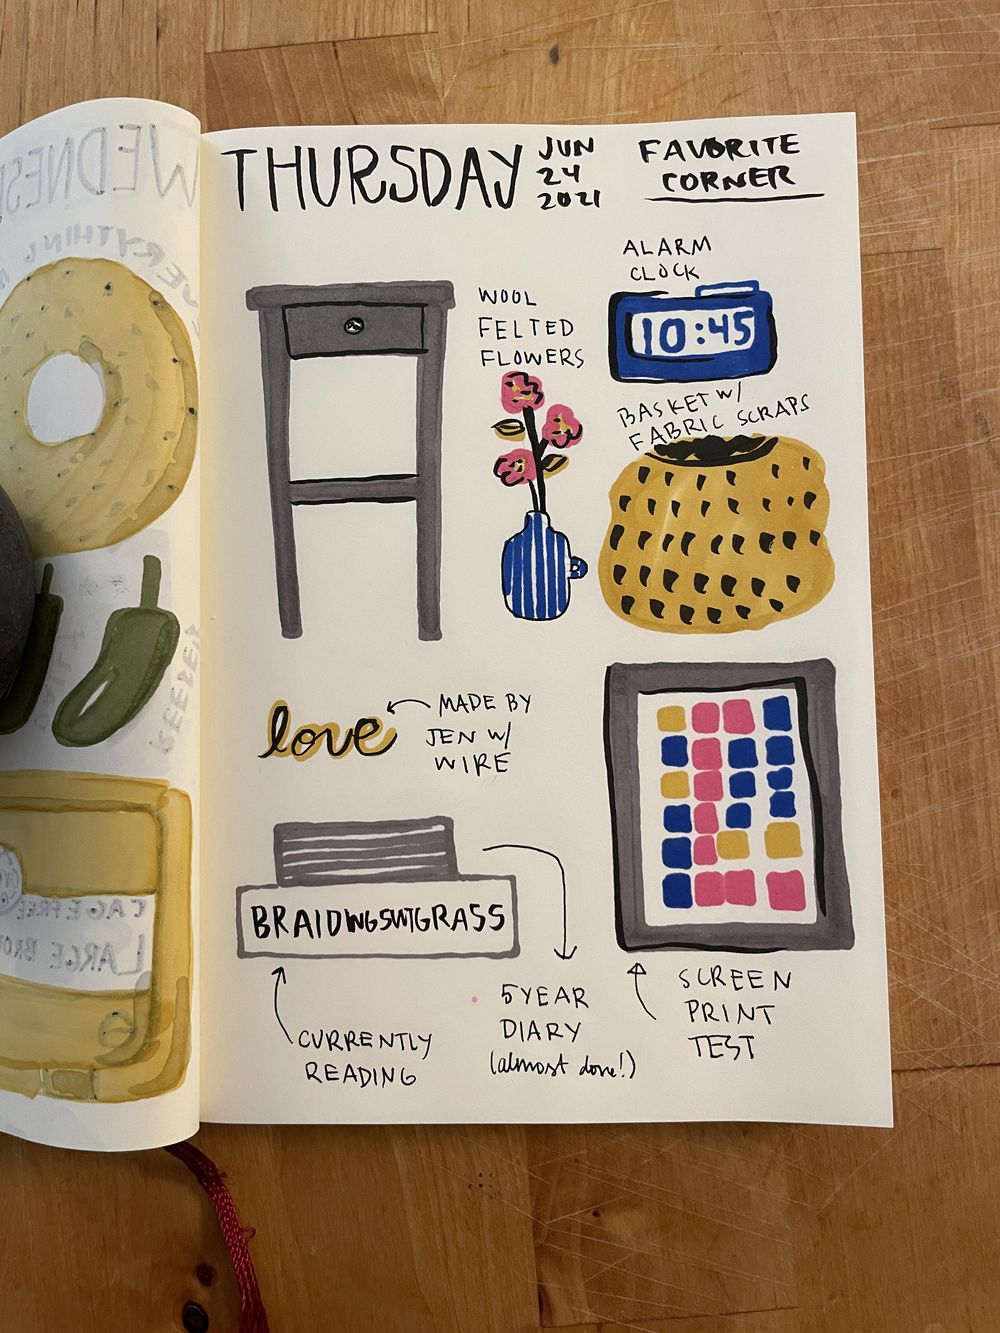 THURSDAY
JUN
24
2021
FAVORITE
CORNER
ALARM
CLOCK
10:45
WOOL
FELTED
FLOWERS
BASKET W/
FABRIC SCRAPS
love
MADE BY
JEN W/
WIRE
BRAIDINGSWTGRASS
CURRENTLY
READING
5 YEAR
DIARY
(almost done!)
SCREEN
PRINT
TEST
WEDNES
CAGE FREE
LARGE BRO